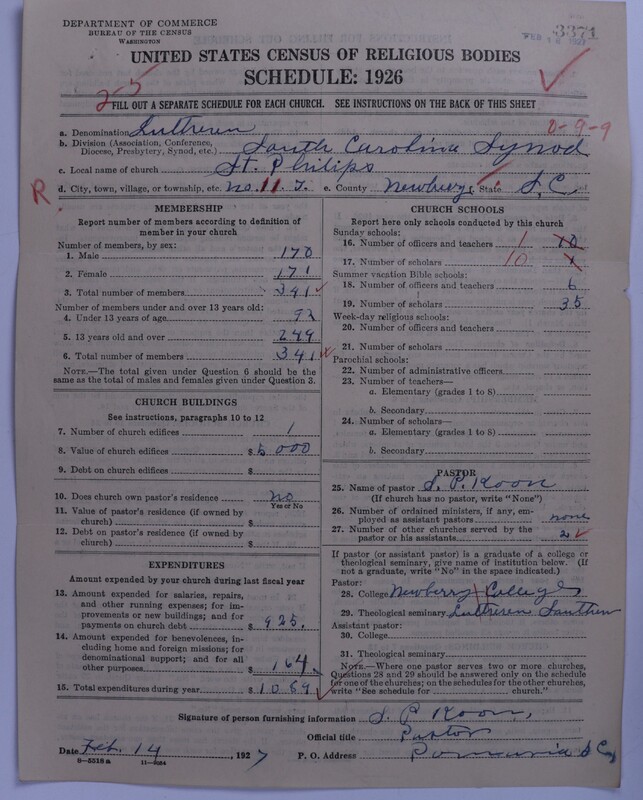 DEPARTMENT OF COMMERCE
BUREAU OF THE CENSUS
WASHINGTON
3371
FEB 16 1927
UNITED STATES CENSUS OF RELIGIOUS BODIES
SCHEDULE: 1926
2-5
FILL OUT A SEPARATE SCHEDULE FOR EACH CHURCH. SEE INSTRUCTIONS ON THE BACK OF THIS SHEET
0-9-9
a. Denomination Lutheren
b. Division (Association, Conference, Diocese, Presbytery, Synod, etc.) South Carolina Synod
c. Local name of church St. Philips
R
d. City, town, village, or township, etc. No. 11 T. e. County Newberry f. State S.C.
MEMBERSHIP
Report number of members according to definition of
member in your church
Number of members, by sex:
1. Male 170
2. Female 171
3. Total number of members 341
Number of members under and over 13 years old:
4. Under 13 years of age 92
5. 13 years old and over 249
6. Total number of members 341
NOTE.—The total given under Question 6 should be
same as the total of males and females given under Question 3.
CHURCH BUILDINGS
See instructions, paragraphs 10 to 12
7. Number of church edifices 1
8. Value of church edifices $5000
9. Debt on church edifices $
10. Does church own pastor's residence No
Yes or No
11. Value of pastor's residence (if owned by
church) $
12. Debt on pastor's residence (if owned by
church) $
EXPENDITURES
Amount expended by your church during last fiscal year
13. Amount expended for salaries, repairs,
and other running expenses; for im-
provements or new buildings; and for
payments on church debt $ 925.
14. Amount expended for benevolences, in-
cluding home and foreign missions; for
denominational support; and for all
other purposes $ 164
15. Total expenditures during year $ 1089
CHURCH SCHOOLS
Report here only schools conducted by this church
Sunday schools:
16. Number of officers and teachers 1 10
17. Number of scholars 10 1
Summer vacation Bible schools:
18. Number of officers and teachers 6
19. Number of scholars 35
Week-day religious schools:
20. Number of officers and teachers
21. Number of scholars
Parochial schools:
22. Number of administrative officers
23. Number of teachers—
a. Elementary (grades 1 to 8)
b. Secondary
24. Number of scholars—
a. Elementary (grades 1 to 8)
b. Secondary
PASTOR
25. Name of pastor S. P. Koon
(If church has no pastor, write "None")
26. Number of ordained ministers, if any, em-
ployed as assistant pastors none
27. Number of other churches served by the
pastor or his assistants 2
If pastor (or assistant pastor) is a graduate of a college or
theological seminary, give name of institution below. (If
not a graduate, write "No" in the space indicated.)
Pastor:
28. College Newberry College
29. Theological seminary Lutheren Southren
Assistant pastor:
30. College
31. Theological seminary
NOTE.—Where one pastor serves two or more churches,
Questions 28 and 29 should be answered only on the schedule
for one of the churches; on the schedules for the other churches,
write "See schedule for church."
Signature of person furnishing information S. P. Koon,
Official title Pastor
Date Feb. 14, 1927 P. O. Address Pomaria S C
8-5518a 11-9554